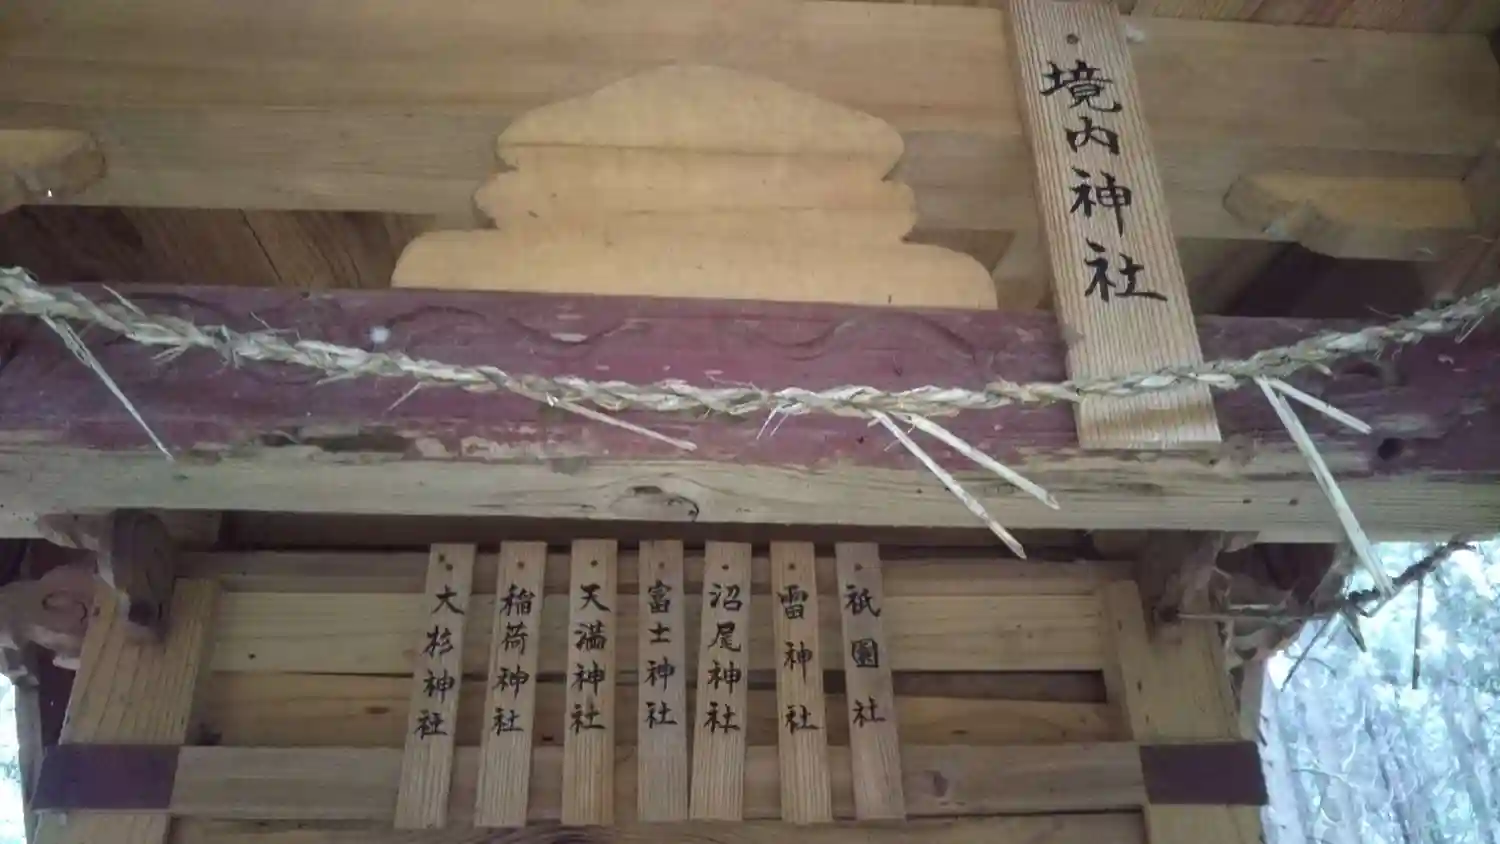 境内神社
祇園社
雷神社
沼尾神社
富士神社
天満神社
稲荷神社
大杉神社